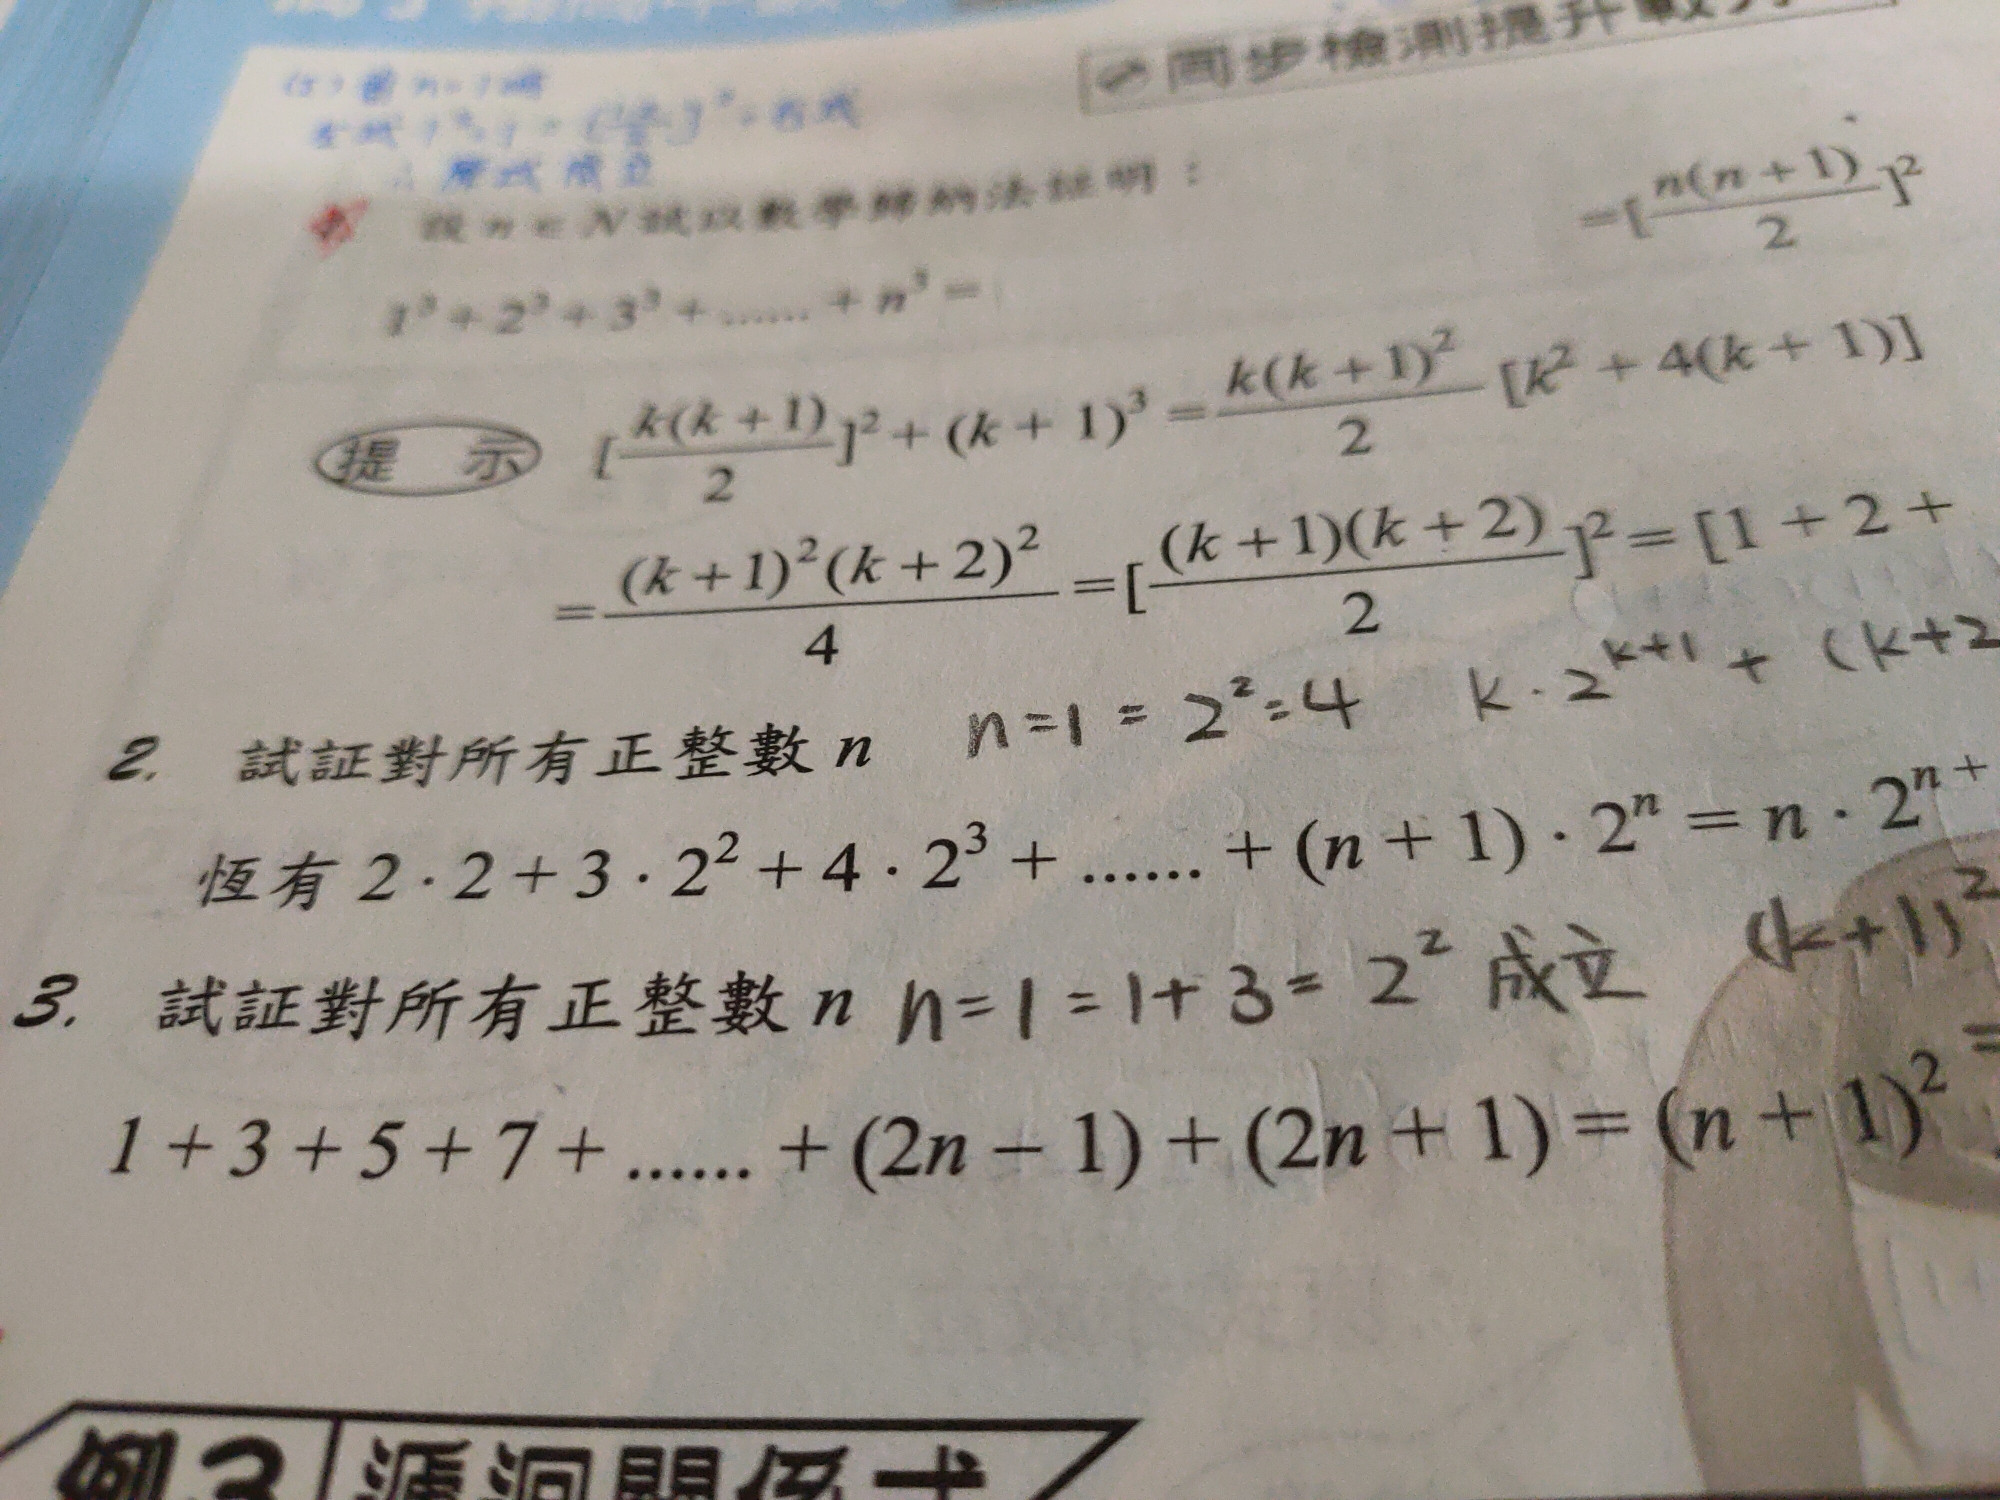 同步檢測提升戰力
(1) 當 n = 1 時
左式 1³ = 1 =
= 右式
∴ 原式成立
設 n ∈ N 試以數學歸納法証明：
1³ + 2³ + 3³ + ...... + n³ =
= [n(n + 1)/2]²
提 示 [k(k + 1)/2]² + (k + 1)³ = k(k + 1)²/2 [k² + 4(k + 1)]
= (k + 1)²(k + 2)²/4 = [(k + 1)(k + 2)/2]² = [1 + 2 +
2. 試証對所有正整數 n n=1 = 2²=4 k · 2^(k+1) + (k+2
恆有 2 · 2 + 3 · 2² + 4 · 2³ + ...... + (n + 1) · 2ⁿ = n · 2^(n +
3. 試証對所有正整數 n n=1 = 1+3 = 2² 成立 (k+1)²
1 + 3 + 5 + 7 + ...... + (2n − 1) + (2n + 1) = (n + 1)² =
例3 遞迴關係式